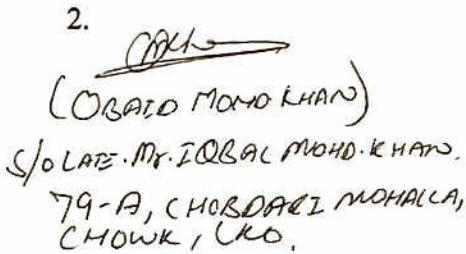 2.
(OBAID MOHD KHAN)
S/O LATE. Mr. IQBAL MOHD. KHAN.
79-A, CHOBDARI MOHALLA,
CHOWK, LKO.